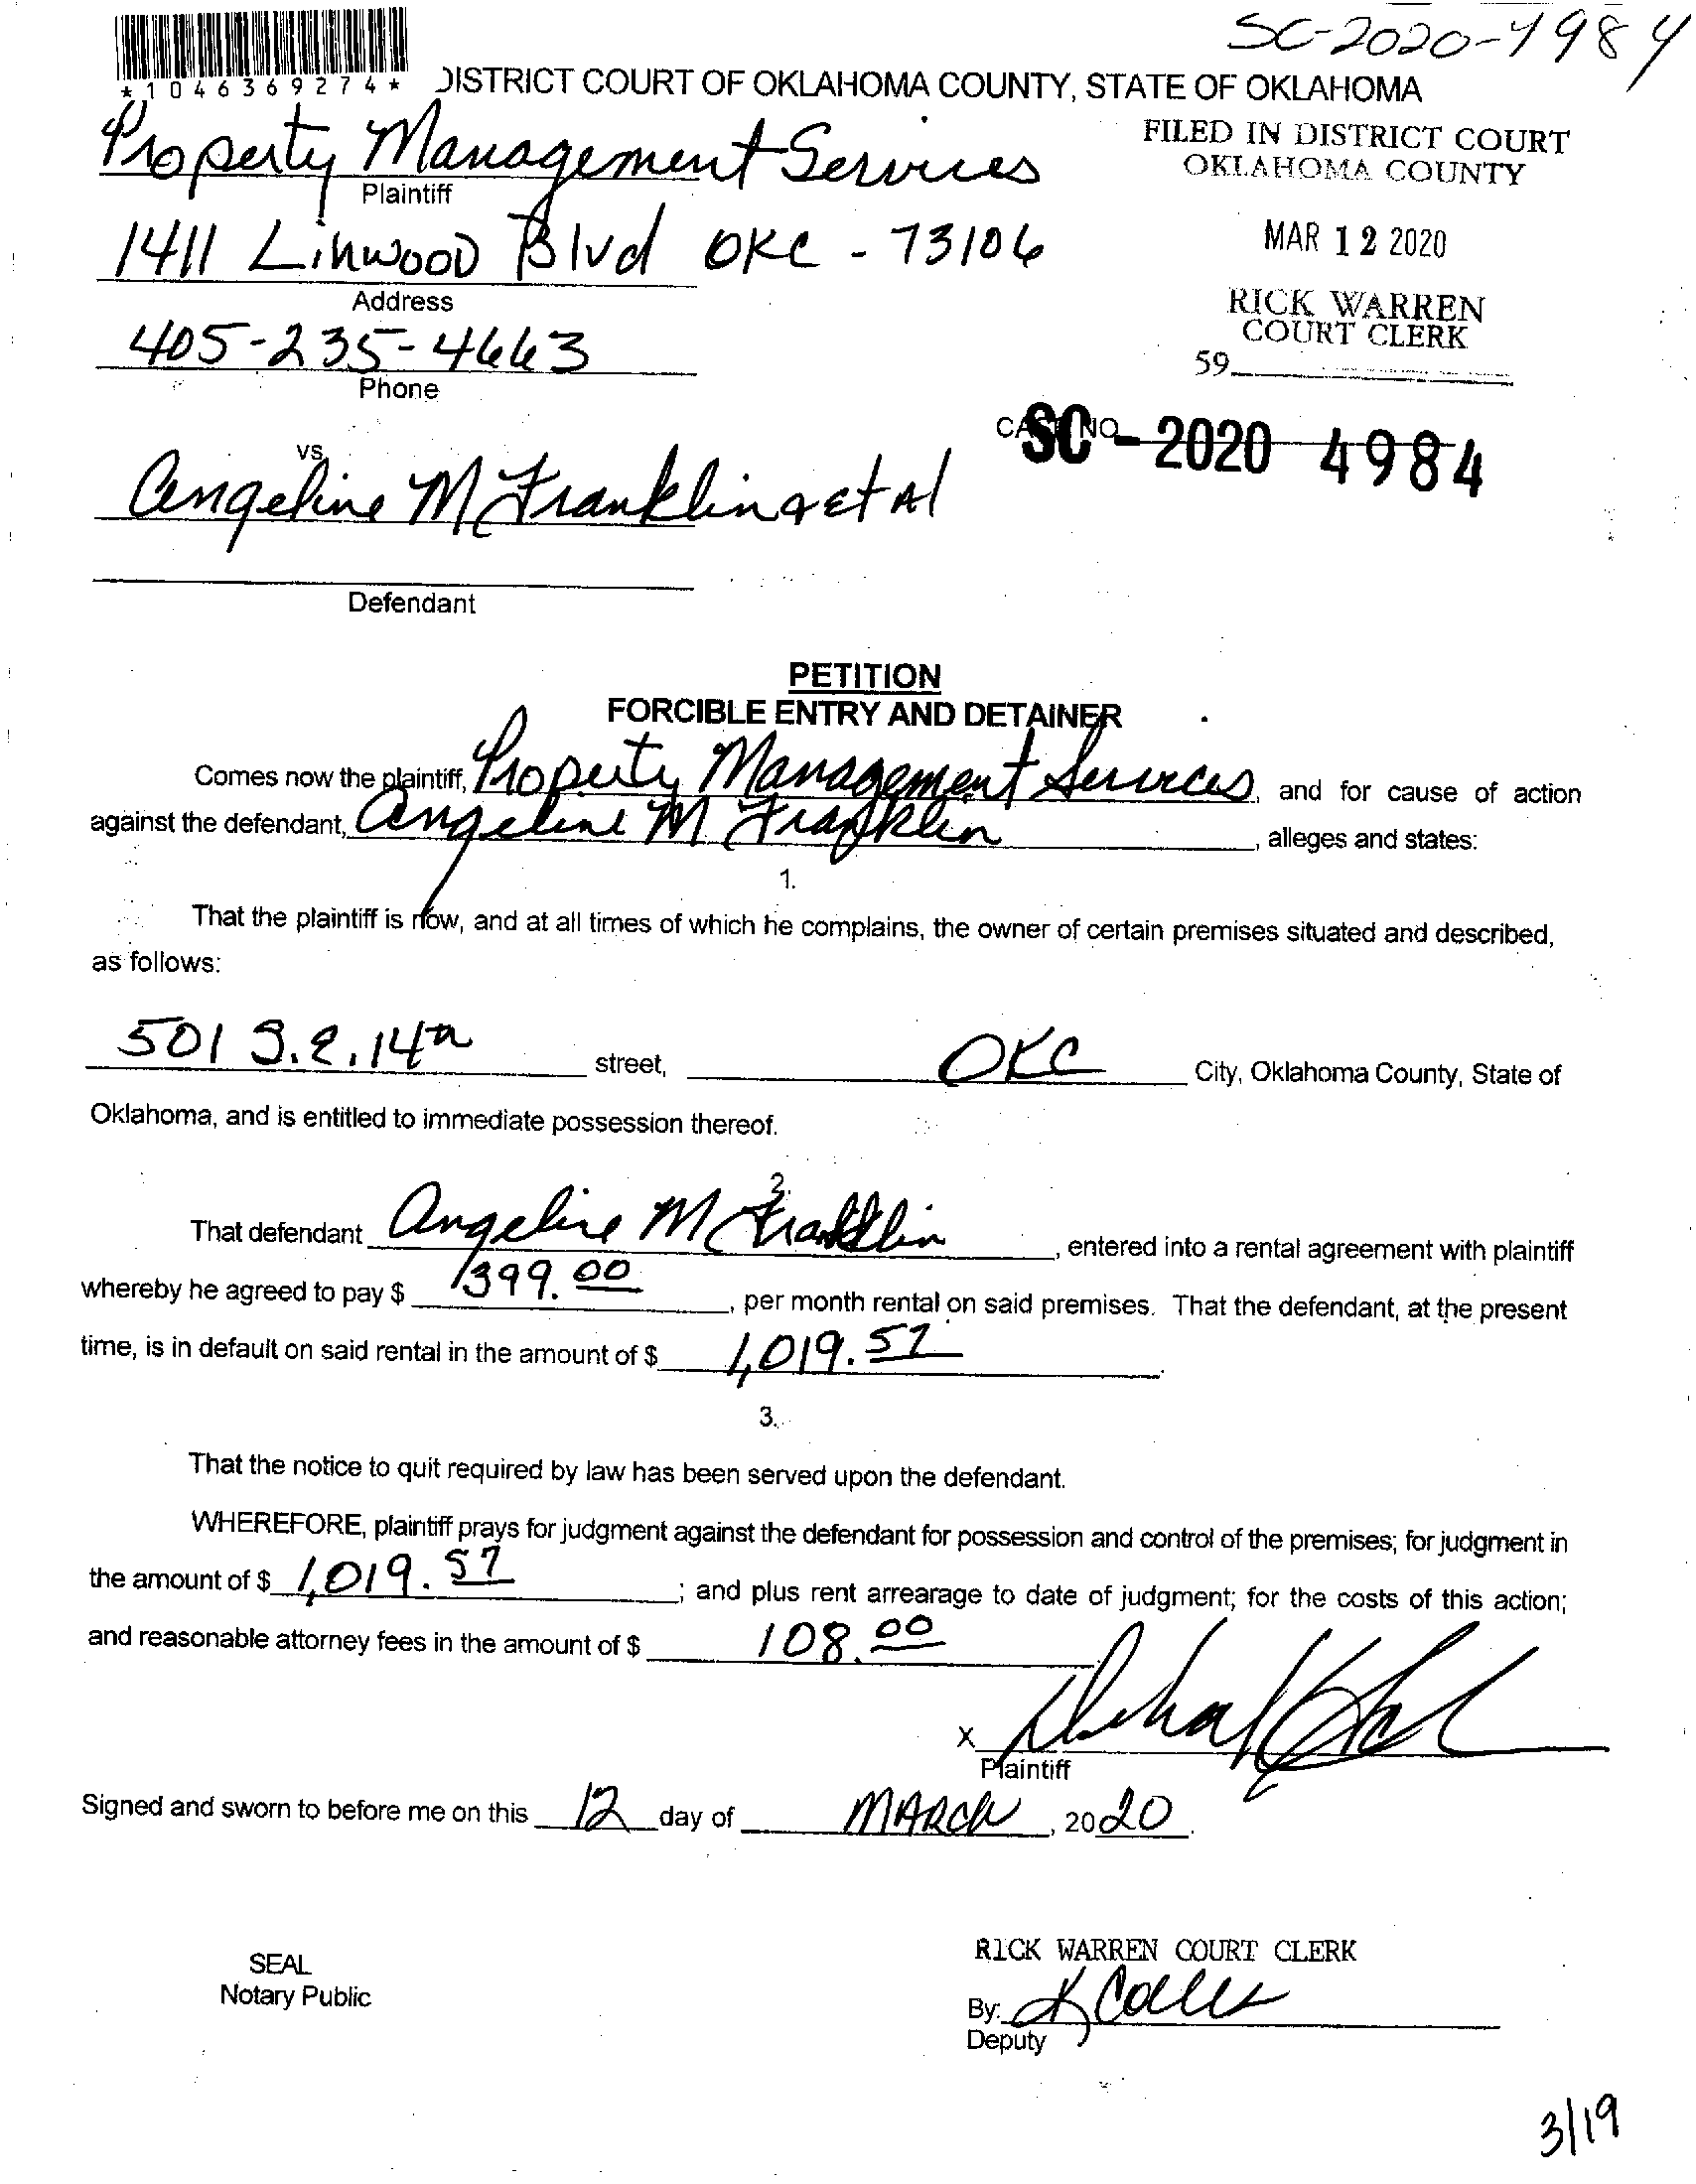 SC-2020-4984
*1046369274*
DISTRICT COURT OF OKLAHOMA COUNTY, STATE OF OKLAHOMA
Property Management Services
Plaintiff
FILED IN DISTRICT COURT
OKLAHOMA COUNTY
1411 Linwood Blvd OKC - 73106
Address
MAR 12 2020
RICK WARREN
COURT CLERK
405-235-4663
Phone
59
CASE NO.
SC - 2020 4984
vs.
Angeline M Franklin et Al
Defendant
PETITION
FORCIBLE ENTRY AND DETAINER
Comes now the plaintiff, Property Management Services, and for cause of action
against the defendant, Angeline M Franklin, alleges and states:
1.
That the plaintiff is now, and at all times of which he complains, the owner of certain premises situated and described,
as follows:
501 S.E. 14th street, OKC City, Oklahoma County, State of
Oklahoma, and is entitled to immediate possession thereof.
2.
That defendant Angeline M Franklin, entered into a rental agreement with plaintiff
whereby he agreed to pay $ 399.00, per month rental on said premises. That the defendant, at the present
time, is in default on said rental in the amount of $ 1,019.57.
3.
That the notice to quit required by law has been served upon the defendant.
WHEREFORE, plaintiff prays for judgment against the defendant for possession and control of the premises; for judgment in
the amount of $ 1,019.57; and plus rent arrearage to date of judgment; for the costs of this action;
and reasonable attorney fees in the amount of $ 108.00
X
Plaintiff
Signed and sworn to before me on this 12 day of MARCH, 2020.
SEAL
Notary Public
RICK WARREN COURT CLERK
By:
Deputy
3/19